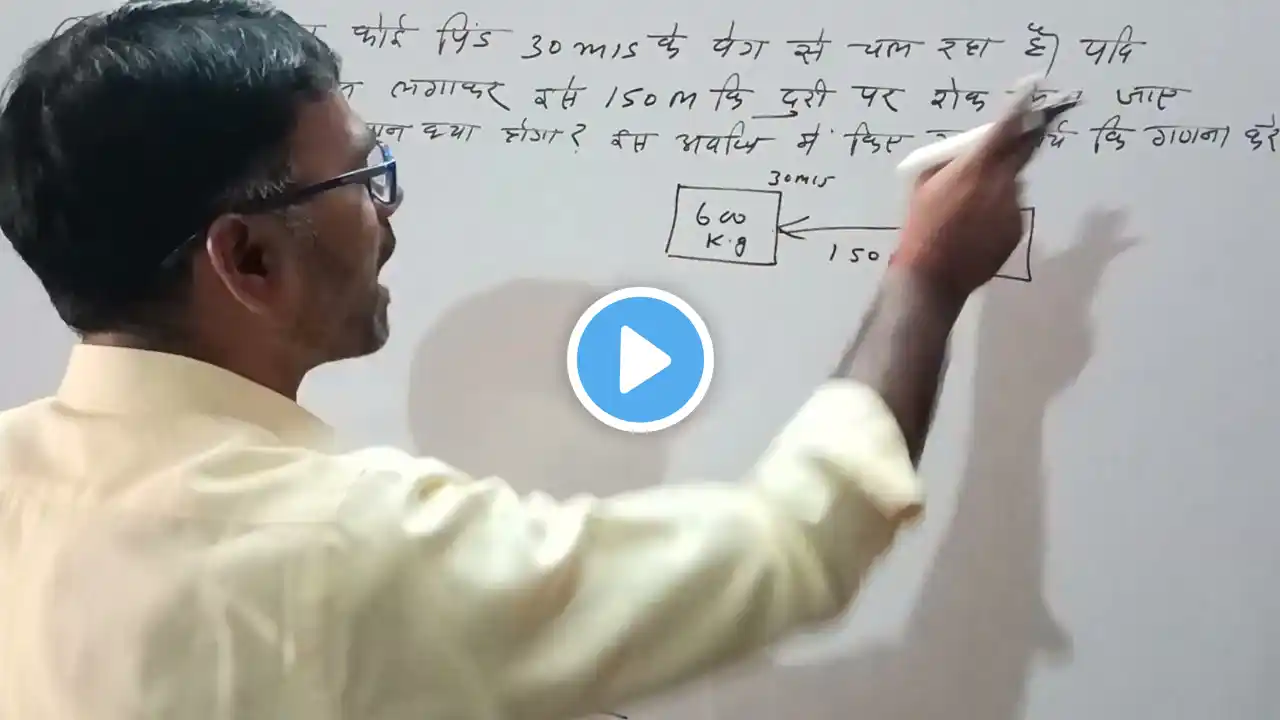 कोई पिंड 30 m/s के वेग से चल रहा है। यदि
लगाकर इसे 150 m कि दुरी पर रोक जाए
क्या होगा? इस अवधि में किए कि गणना करे
30 m/s
600
K.g
150